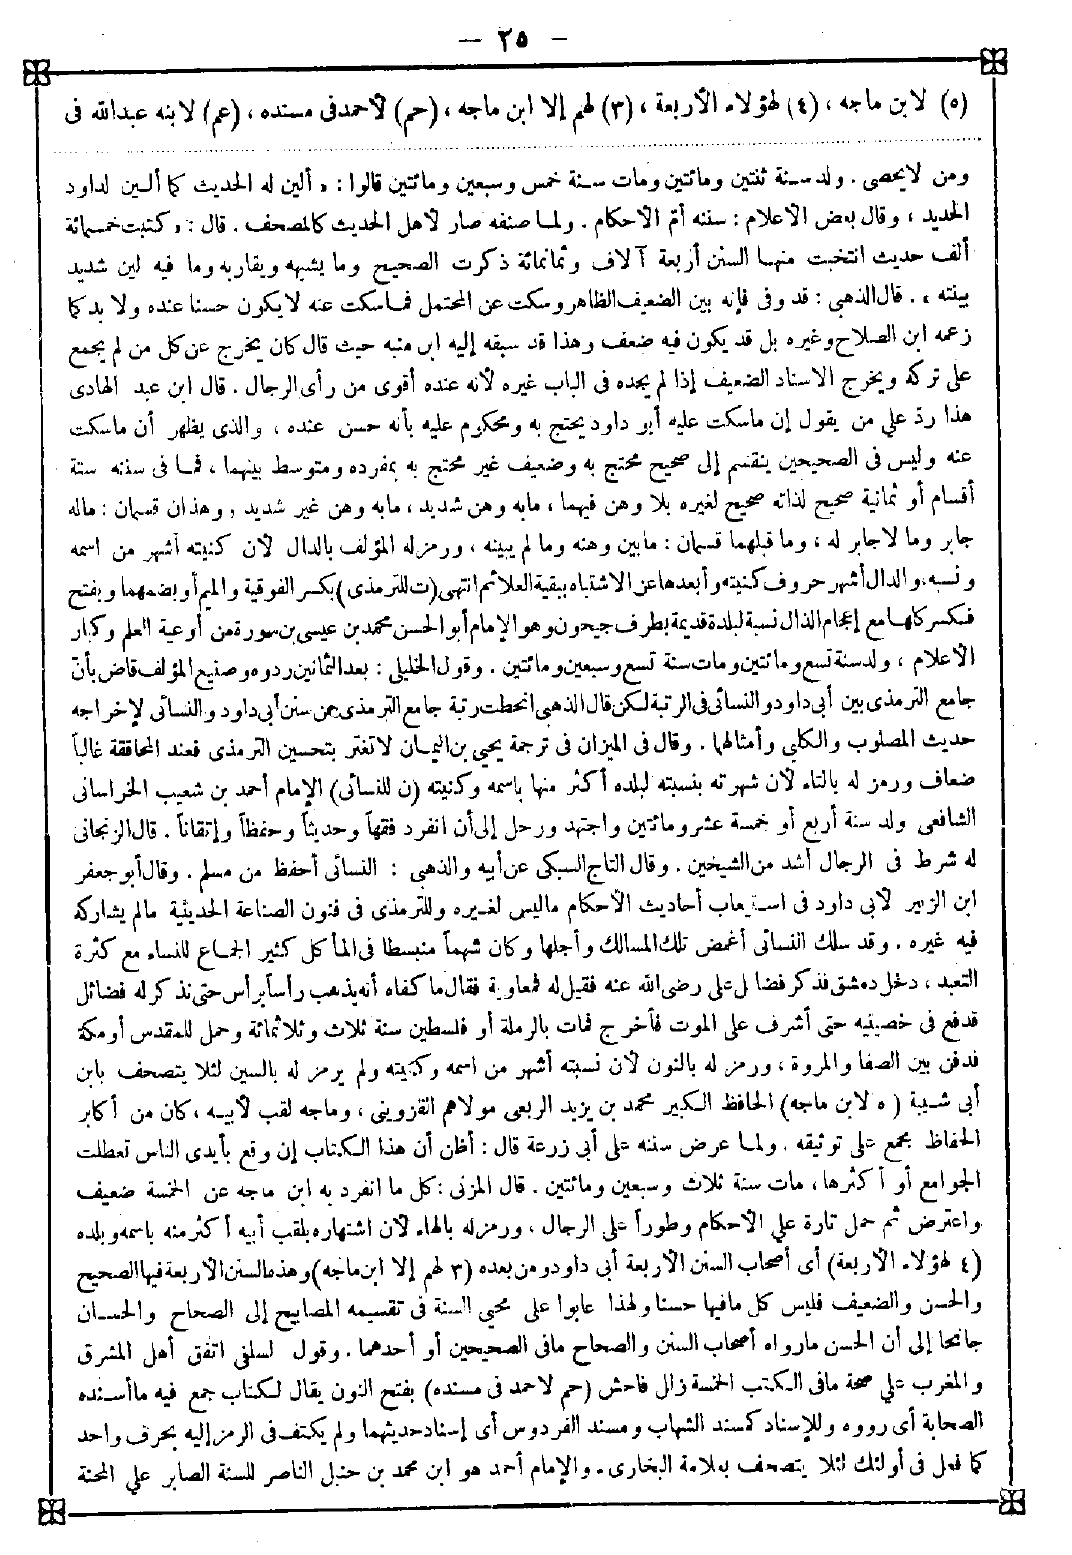 — ٢٥ —
(٥) لابن ماجه ، (٤) لهؤلاء الأربعة ، (٣) لهم إلا ابن ماجه ، (حم) لأحمد فى مسنده ، (عم) لابنه عبدالله فى
ومن لايحصى . ولد سنة ثنتين ومائتين ومات سنة خمس وسبعين ومائتين قالوا : « ألين له الحديث كما ألين لداود
الحديد ، وقال بعض الأعلام : سننه أم الأحكام . ولما صنفه صار لأهل الحديث كالمصحف . قال : « كتبت خمسمائة
ألف حديث انتخبت منها السنن أربعة آلاف وثمانمائة ذكرت الصحيح وما يشبهه ويقاربه وما فيه لين شديد
بينته ، . قال الذهبى : قد وفى فإنه بين الضعيف الظاهر وسكت عن المحتمل فما سكت عنه لايكون حسنا عنده ولا بد كما
زعمه ابن الصلاح وغيره بل قد يكون فيه ضعف وهذا قد سبقه إليه ابن منبه حيث قال كان يخرج عن كل من لم يجمع
على تركه ويخرج الاسناد الضعيف إذا لم يجده فى الباب غيره لأنه عنده أقوى من رأى الرجال . قال ابن عبد الهادى
هذا ردّ على من يقول إن ماسكت عليه أبو داود يحتج به ومحكوم عليه بأنه حسن عنده ، والذى يظهر أن ماسكت
عنه وليس فى الصحيحين ينقسم إلى صحيح محتج به وضعيف غير محتج به بمفرده ومتوسط بينهما ، فما فى سننه ستة
أقسام أو ثمانية صحيح لذاته صحيح لغيره بلا وهن فيهما ، مابه وهن شديد ، مابه وهن غير شديد ، وهذان قسمان : ماله
جابر وما لاجابر له ، وما قبلهما قسمان : مابين وهنه وما لم يبينه ، ورمز له المؤلف بالدال لأن كنيته أشهر من اسمه
ونسبه، والدال أشهر حروف كنيته وأبعدها عن الاشتباه ببقية العلائم انتهى (ت للترمذى) بكسر الفوقية والميم أو بضمهما وبفتح
فكسر كلها مع إعجام الذال نسبة لبلدة قديمة بطرف جيحون وهو الإمام أبو الحسن محمد بن عيسى بن سورة من أوعية العلم وكبار
الأعلام ، ولد سنة تسع ومائتين ومات سنة تسع وسبعين ومائتين . وقول الخليلى : بعد الثمانين ردوه وصنيع المؤلف قاض بأن
جامع الترمذى بين أبى داود والنسائى فى الرتبة لكن قال الذهبى انحطت رتبة جامع الترمذى عن سنن أبى داود والنسائى لإخراجه
حديث المصلوب والكلبى وأمثالهما . وقال فى الميزان فى ترجمة يحيى بن اليمان لاتغتر بتحسين الترمذى فعند المحاققة غالباً
ضعاف ورمز له بالتاء لأن شهرته بنسبته لبلده أكثر منها باسمه وكنيته (ن للنسائى) الإمام أحمد بن شعيب الخراسانى
الشافعى ولد سنة أربع أو خمسة عشر ومائتين واجتهد ورحل إلى أن انفرد فقهاً وحديثاً وحفظاً وإتقاناً . قال الزنجانى
له شرط فى الرجال أشد من الشيخين . وقال التاج السبكى عن أبيه والذهبى : النسائى أحفظ من مسلم . وقال أبو جعفر
ابن الزبير لأبى داود فى استيعاب أحاديث الأحكام ماليس لغيره وللترمذى فى فنون الصناعة الحديثية مالم يشاركه
فيه غيره . وقد سلك النسائى أغمض تلك المسالك وأجلها وكان شهماً منبسطا فى المأكل كثير الجماع للنساء مع كثرة
التعبد ، دخل دمشق فذكر فضائل على رضى الله عنه فقيل له فمعاوية فقال ما كفاه أنه يذهب رأساً برأس حتى نذكر له فضائل
فدفع فى خصيتيه حتى أشرف على الموت فأخرج فمات بالرملة أو فلسطين سنة ثلاث وثلاثمائة وحمل للمقدس أو مكة
فدفن بين الصفا والمروة ، ورمز له بالنون لأن نسبته أشهر من اسمه وكنيته ولم يرمز له بالسين لئلا يتصحف بابن
أبى شيبة (ه لابن ماجه) الحافظ الكبير محمد بن يزيد الربعى مولاهم القزوينى ، وماجه لقب لأبيه ، كان من أكابر
الحفاظ مجمع على توثيقه . ولما عرض سننه على أبى زرعة قال : أظن أن هذا الكتاب إن وقع بأيدى الناس تعطلت
الجوامع أو أكثرها ، مات سنة ثلاث وسبعين ومائتين . قال المزنى : كل ما انفرد به ابن ماجه عن الخمسة ضعيف
واعترض ثم حمل تارة على الأحكام وطوراً على الرجال ، ورمز له بالهاء لأن اشتهاره بلقب أبيه أكثر منه باسمه وبلده
(٤ لهؤلاء الأربعة) أى أصحاب السنن الأربعة أبى داود ومن بعده (٣ لهم إلا ابن ماجه) وهذه السنن الأربعة فيها الصحيح
والحسن والضعيف فليس كل مافيها حسنا ولهذا عابوا على محيى السنة فى تقسيمه المصابيح إلى الصحاح والحسان
جانحا إلى أن الحسن مارواه أصحاب السنن والصحاح مافى الصحيحين أو أحدهما . وقول لسلفى اتفق أهل المشرق
والمغرب على صحة مافى الكتب الخمسة زلل فاحش (حم لاحمد فى مسنده) بفتح النون يقال لكتاب جمع فيه ماأسنده
الصحابة أى رووه وللإسناد كمسند الشهاب ومسند الفردوس أى إسناد حديثهما ولم يكتف فى الرمز إليه بحرف واحد
كما فعل فى أولئك لئلا يتصحف بعلامة البخارى . والإمام أحمد هو ابن محمد بن حنبل الناصر للسنة الصابر على المحنة